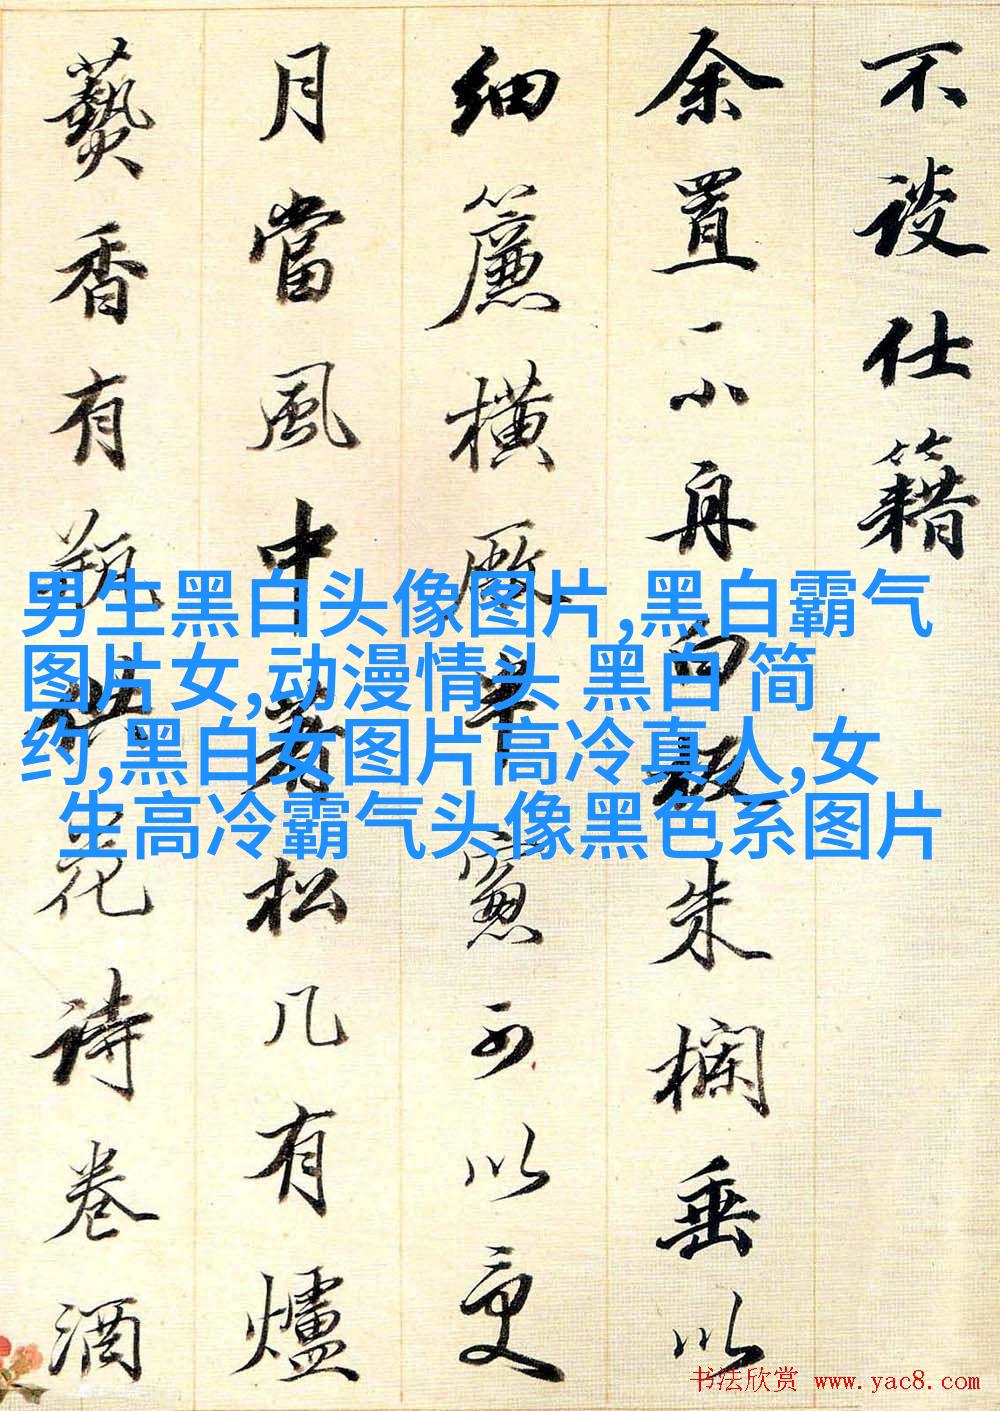 不談仕籍
余置一小舟白板朱欄垂以
細簾橫厰半窻可以更
月當風中松几有爐
爇香有瓶供花詩卷酒
男生黑白头像图片,黑白霸气
图片女,动漫情头 黑白 简
约,黑白女图片高冷真人,女
生高冷霸气头像黑色系图片
书法欣赏 www.yac8.com